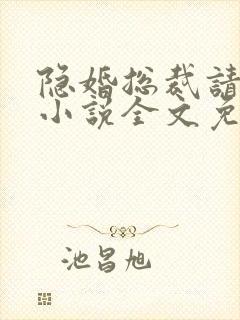 隐婚总裁請
小说全文免
池昌旭